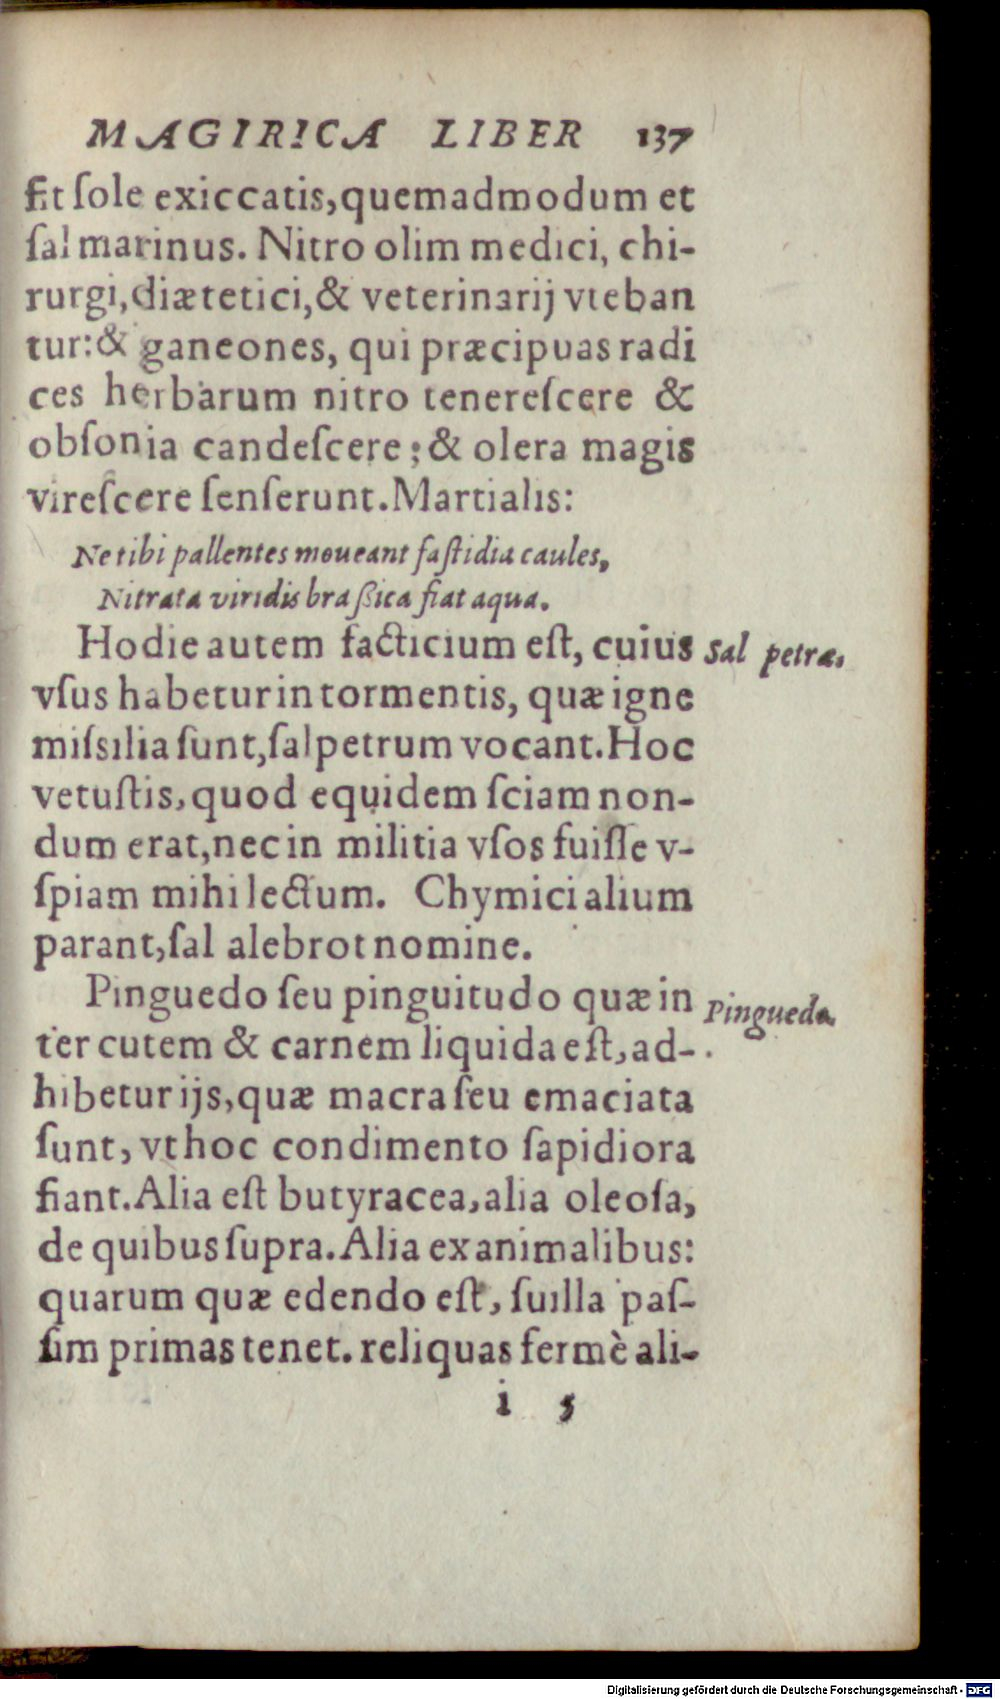 MAGIRICA LIBER 137
fit ſole exiccatis, quemadmodum et
ſal marinus. Nitro olim medici, chi-
rurgi, diætetici, & veterinarij vteban
tur: & ganeones, qui præcipuas radi
ces herbarum nitro tenereſcere &
obſonia candeſcere; & olera magis
vireſcere ſenſerunt. Martialis:
Ne tibi pallentes moueant faſtidia caules,
Nitrata viridis braßica fiat aqua.
Hodie autem facticium eſt, cuius
Sal petræ.
vſus habetur in tormentis, quæ igne
miſsilia ſunt, ſalpetrum vocant. Hoc
vetuſtis, quod equidem ſciam non-
dum erat, nec in militia vſos fuiſſe v-
ſpiam mihi lectum. Chymici alium
parant, ſal alebrot nomine.
Pinguedo ſeu pinguitudo quæ in
Pinguedo.
ter cutem & carnem liquida eſt, ad-
hibetur ijs, quæ macra ſeu emaciata
ſunt, vt hoc condimento ſapidiora
fiant. Alia eſt butyracea, alia oleoſa,
de quibus ſupra. Alia ex animalibus:
quarum quæ edendo eſt, ſuilla paſ-
ſim primas tenet. reliquas fermè ali-
i 5
Digitalisierung gefördert durch die Deutsche Forschungsgemeinschaft - DFG